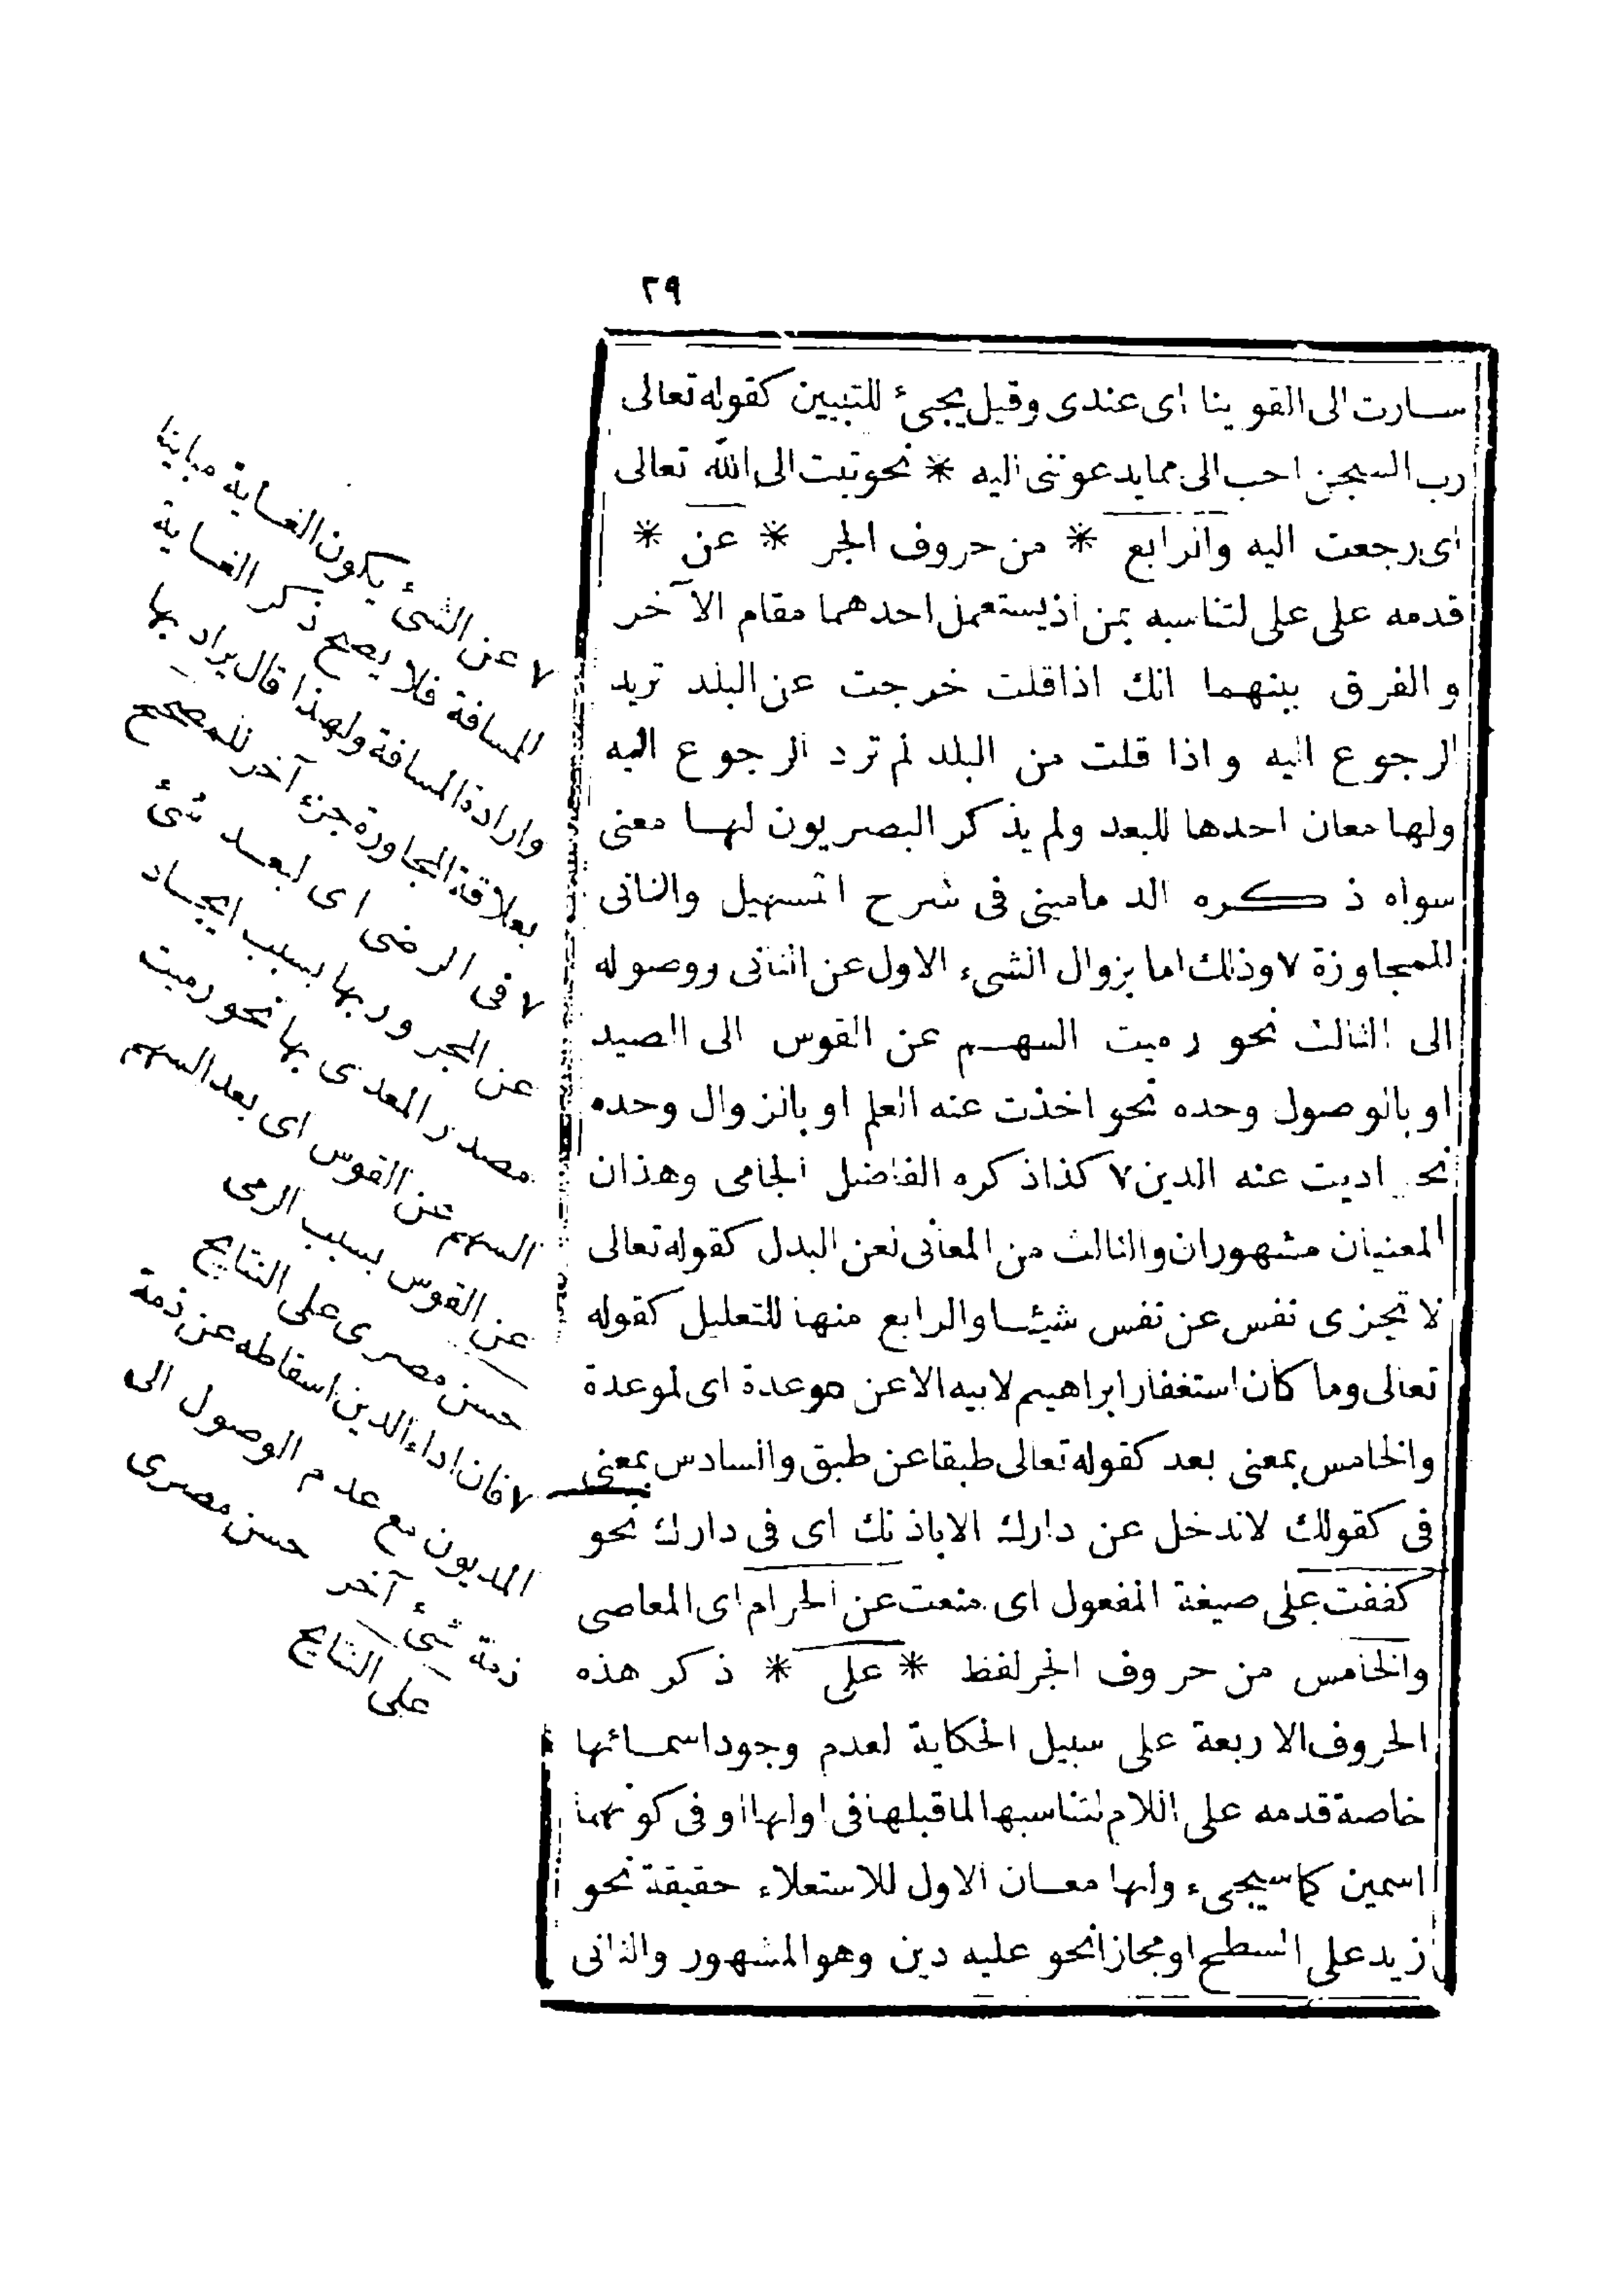 ٢٩
سارت الى القوينا اى عندى وقيل يجيئ للتبيين كقوله تعالى
رب السجن احب الى مما يدعوننى اليه * نحو تبت الى الله تعالى
اى رجعت اليه والرابع * من حروف الجر * عن *
قدمه على على لتناسبه بمن اذ يستعمل احدهما مقام الآخر
والفرق بينهما انك اذا قلت خرجت عن البلد تريد
الرجوع اليه واذا قلت من البلد لم ترد الرجوع اليه
ولها معان احدها للبعد ولم يذكر البصريون لها معنى
سواه ذكره الدمامينى فى شرح التسهيل والثانى
للمجاوزة ٧ وذلك اما بزوال الشىء الاول عن الثانى ووصوله
الى الثالث نحو رميت السهم عن القوس الى الصيد
او بالوصول وحده نحو اخذت عنه العلم او بالزوال وحده
نحو اديت عنه الدين ٧ كذا ذكره الفاضل الجامى وهذان
المعنيان مشهوران والثالث من المعانى لعن البدل كقوله تعالى
لا تجزى نفس عن نفس شيئا والرابع منها للتعليل كقوله
تعالى وما كان استغفار ابراهيم لابيه الا عن موعدة اى لموعدة
والخامس بمعنى بعد كقوله تعالى طبقا عن طبق والسادس بمعنى
فى كقولك لا تدخل عن دارك الا باذنك اى فى دارك نحو
كففت على صيغة المفعول اى منعت عن الحرام اى المعاصى
والخامس من حروف الجر لفظ * على * ذكر هذه
الحروف الاربعة على سبيل الحكاية لعدم وجود اسمائها
خاصة قدمه على اللام لتناسبها لما قبلها فى اولها او فى كونهما
اسمين كما سيجىء ولها معان الاول للاستعلاء حقيقة نحو
زيد على السطح او مجازا نحو عليه دين وهو المشهور والثانى
٧ عن الشئ يكون الغاية مباينا
للمسافة فلا يصح ذكر الغاية
وارادة المسافة ولهذا قال يراد بها
بعلاقة المجاورة جزء آخر للمصحح
٧ فى الرضى اى لبعد شئ
عن المجرور بها بسبب ايجاد
مصدر المعدى بها نحو رميت
السهم عن القوس اى بعد السهم
عن القوس بسبب الرمى
حسن مصرى على النتايج
٧ فان اداء الدين اسقاطه عن ذمة
المديون مع عدم الوصول الى
ذمة شئ آخر حسن مصرى
على النتايج